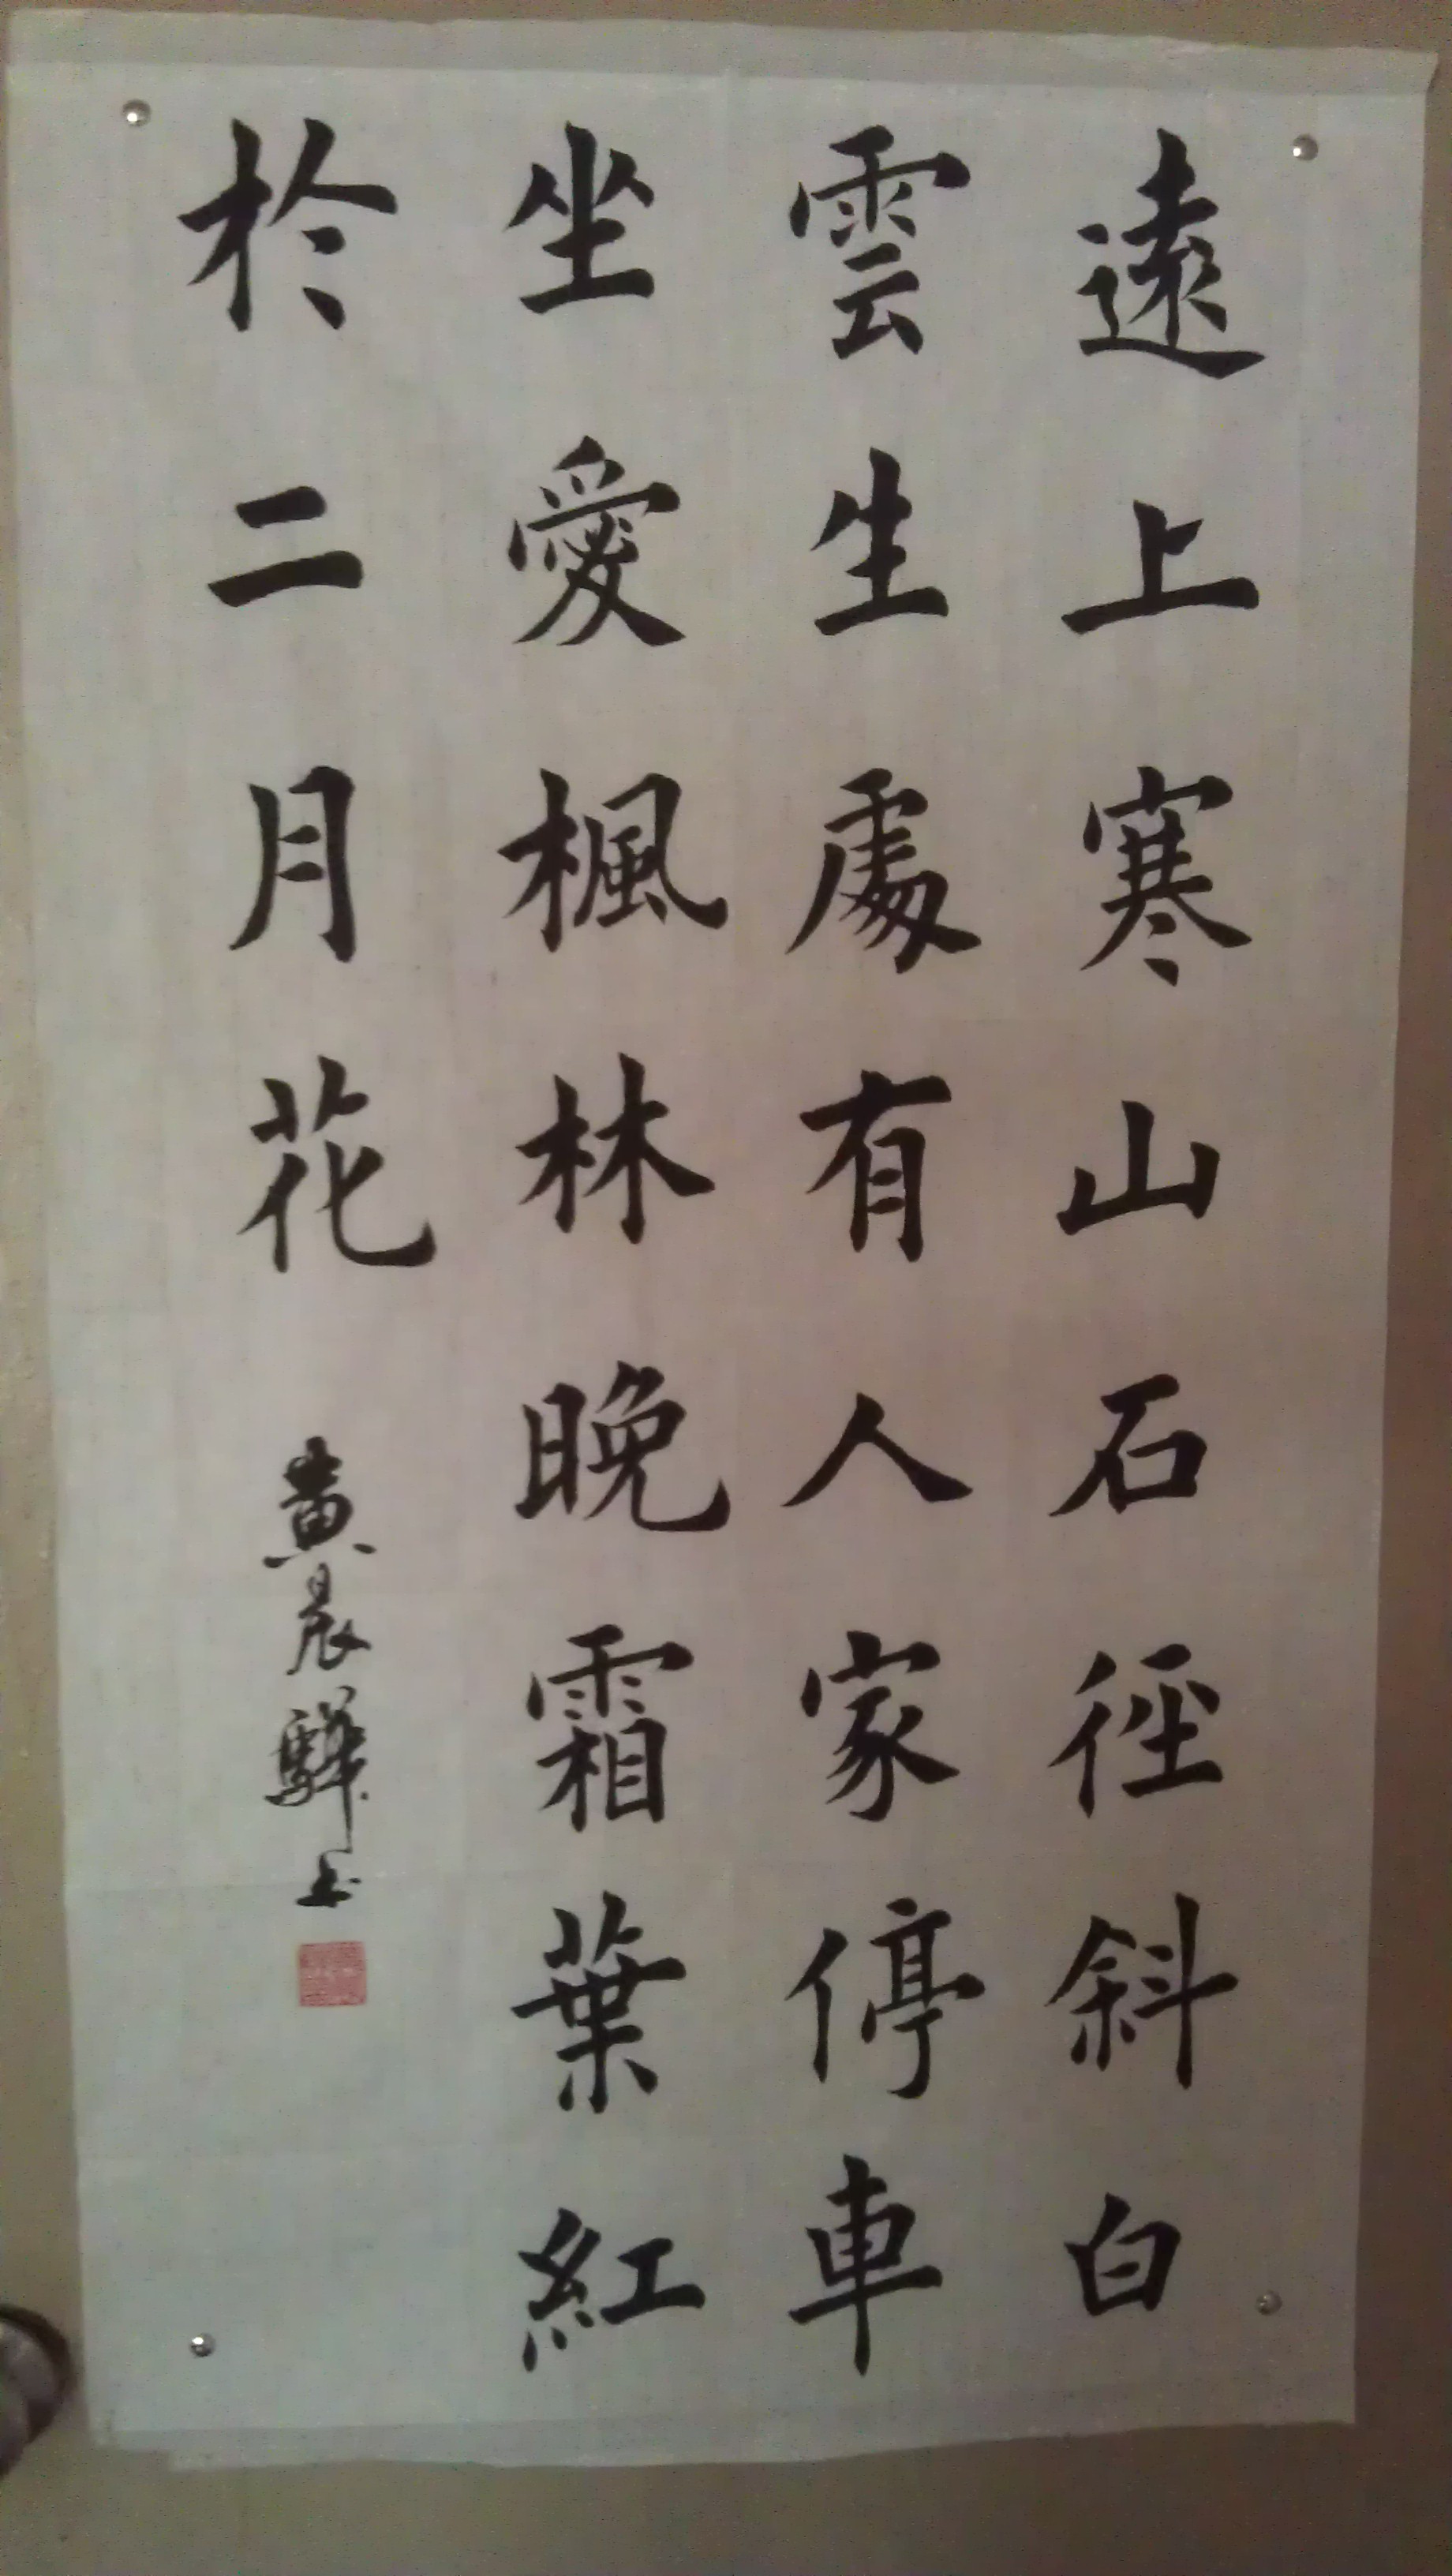 遠上寒山石徑斜白
雲生處有人家停車
坐愛楓林晚霜葉紅
於二月花
黄晨驊书